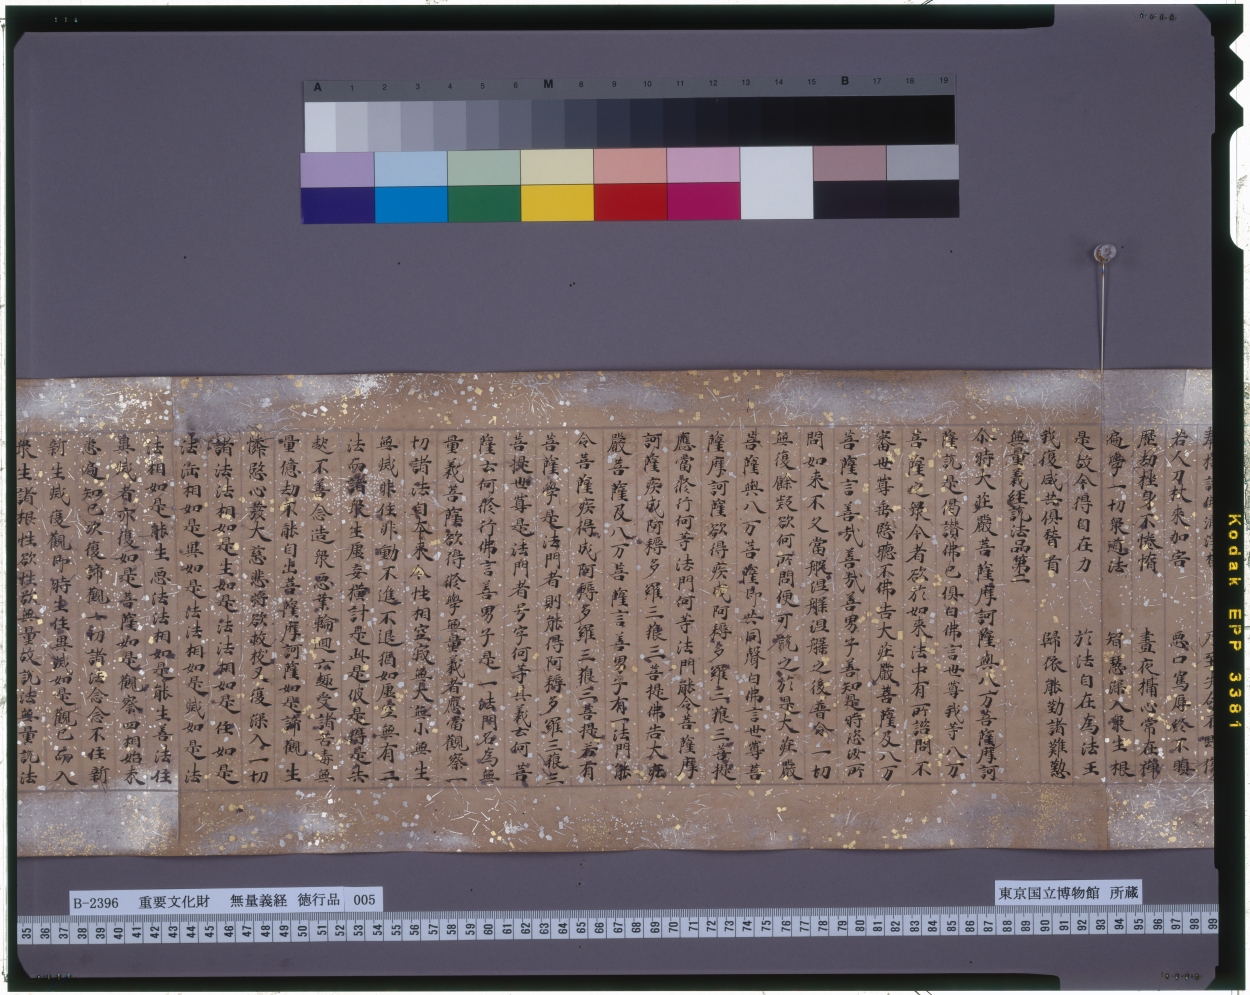 若人刀杖來加害　惡口罵辱終不瞋
歷劫挫身不惓惰　晝夜攝心常在禪
遍學一切眾道法　智慧深入眾生根
是故今得自在力　於法自在為法王
我復咸共俱稽首　歸依能勤諸難懃
無量義經說法品第二
尒時大莊嚴菩薩摩訶薩與八万菩薩摩訶
薩說是偈讚佛已俱白佛言世尊我等八万
菩薩之眾今者欲於如來法中有所諮問不
審世尊垂愍聽不佛告大莊嚴菩薩及八万
菩薩言善哉善哉善男子善知是時恣汝所
問如來不久當般涅槃涅槃之後普令一切
無復餘疑欲何所問便可說之於是大莊嚴
菩薩與八万菩薩即共同聲白佛言世尊菩
薩摩訶薩欲得疾成阿耨多羅三藐三菩提
應當修行何等法門何等法門能令菩薩摩
訶薩疾成阿耨多羅三藐三菩提佛告大莊
嚴菩薩及八万菩薩言善男子有一法門能
令菩薩疾得成阿耨多羅三藐三菩提若有
菩薩學是法門者則能得阿耨多羅三藐三
菩提世尊是法門者号字何等其義云何菩
薩云何修行佛言善男子是一法門名為無
量義菩薩欲得修學無量義者應當觀察一
切諸法自本來今性相空寂無大無小無生
無滅非住非動不進不退猶如虛空無有二
法而諸眾生虛妄橫計是此是彼是得是失
起不善念造眾惡業輪迴六趣受諸苦毒無
量億劫不能自出菩薩摩訶薩如是諦觀生
憐愍心發大慈悲將欲救拔又復深入一切
諸法法相如是生如是法法相如是住如是
法法相如是異如是法法相如是滅如是法
法相如是能生惡法法相如是能生善法住
異滅者亦復如是菩薩如是觀察四相始末
悉遍知已次復諦觀一切諸法念念不住新
新生滅復觀即時生住異滅如是觀已而入
眾生諸根性欲性欲無量故說法無量說法
B-2396　重要文化財　無量義経　徳行品　005
東京国立博物館　所蔵
A 1 2 3 4 5 6 M 8 9 10 11 12 13 14 15 B 17 18 19
35 36 37 38 39 40 41 42 43 44 45 46 47 48 49 50 51 52 53 54 55 56 57 58 59 60 61 62 63 64 65 66 67 68 69 70 71 72 73 74 75 76 77 78 79 80 81 82 83 84 85 86 87 88 89 90 91 92 93 94 95 96 97 98 99
Kodak EPP 3381